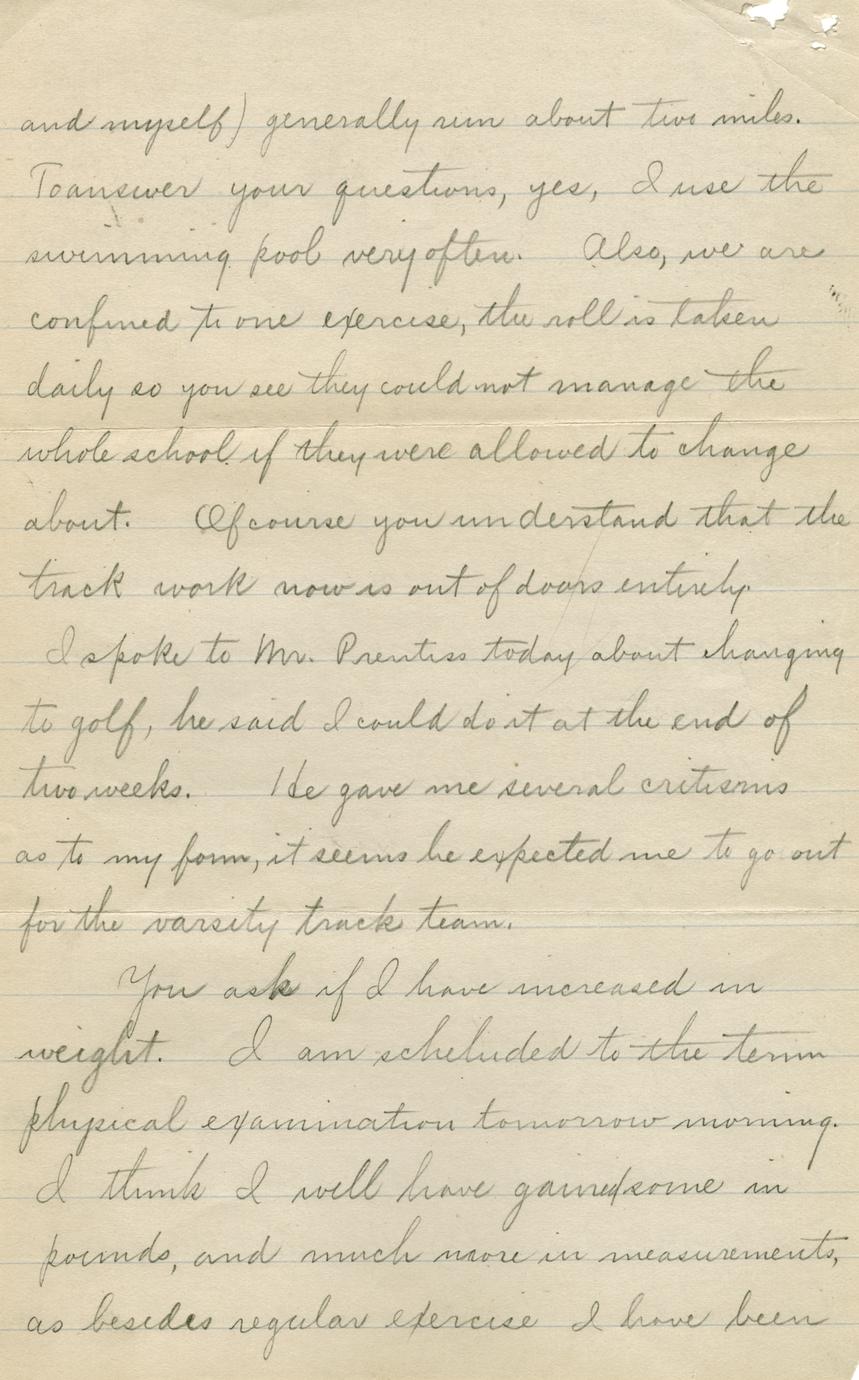 and myself) generally run about two miles.
To answer your questions, yes, I use the
swimming pool very often. Also, we are
confined to one exercise, the roll is taken
daily so you see they could not manage the
whole school if they were allowed to change
about. Of course you understand that the
track work now is out of doors entirely.
I spoke to Mr. Prentiss today about changing
to golf, he said I could do it at the end of
two weeks. He gave me several critisms
as to my form, it seems he expected me to go out
for the varsity track team.
You ask if I have increased in
weight. I am scheluded to the term
physical examination tomorrow morning.
I think I will have gained some in
pounds, and much more in measurements,
as besides regular exercise I have been